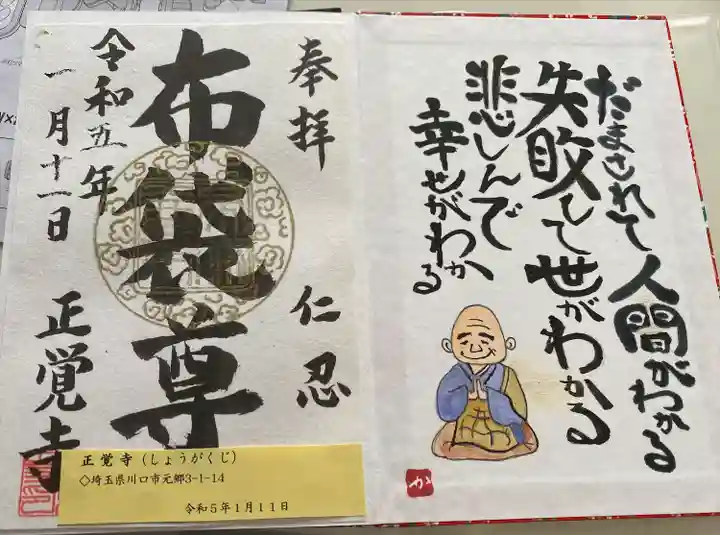 だまされて人間がわかる
失敗して世がわかる
悲しんで
幸せがわかる
か
奉拝
仁忍
布袋尊
令和五年
一月十一日
正覚寺
正覚寺(しょうがくじ)
◇埼玉県川口市元郷3-1-14
令和5年1月11日